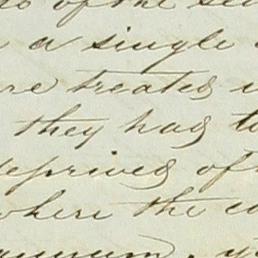 of the
a single
treated
they had to
deprived of
where the